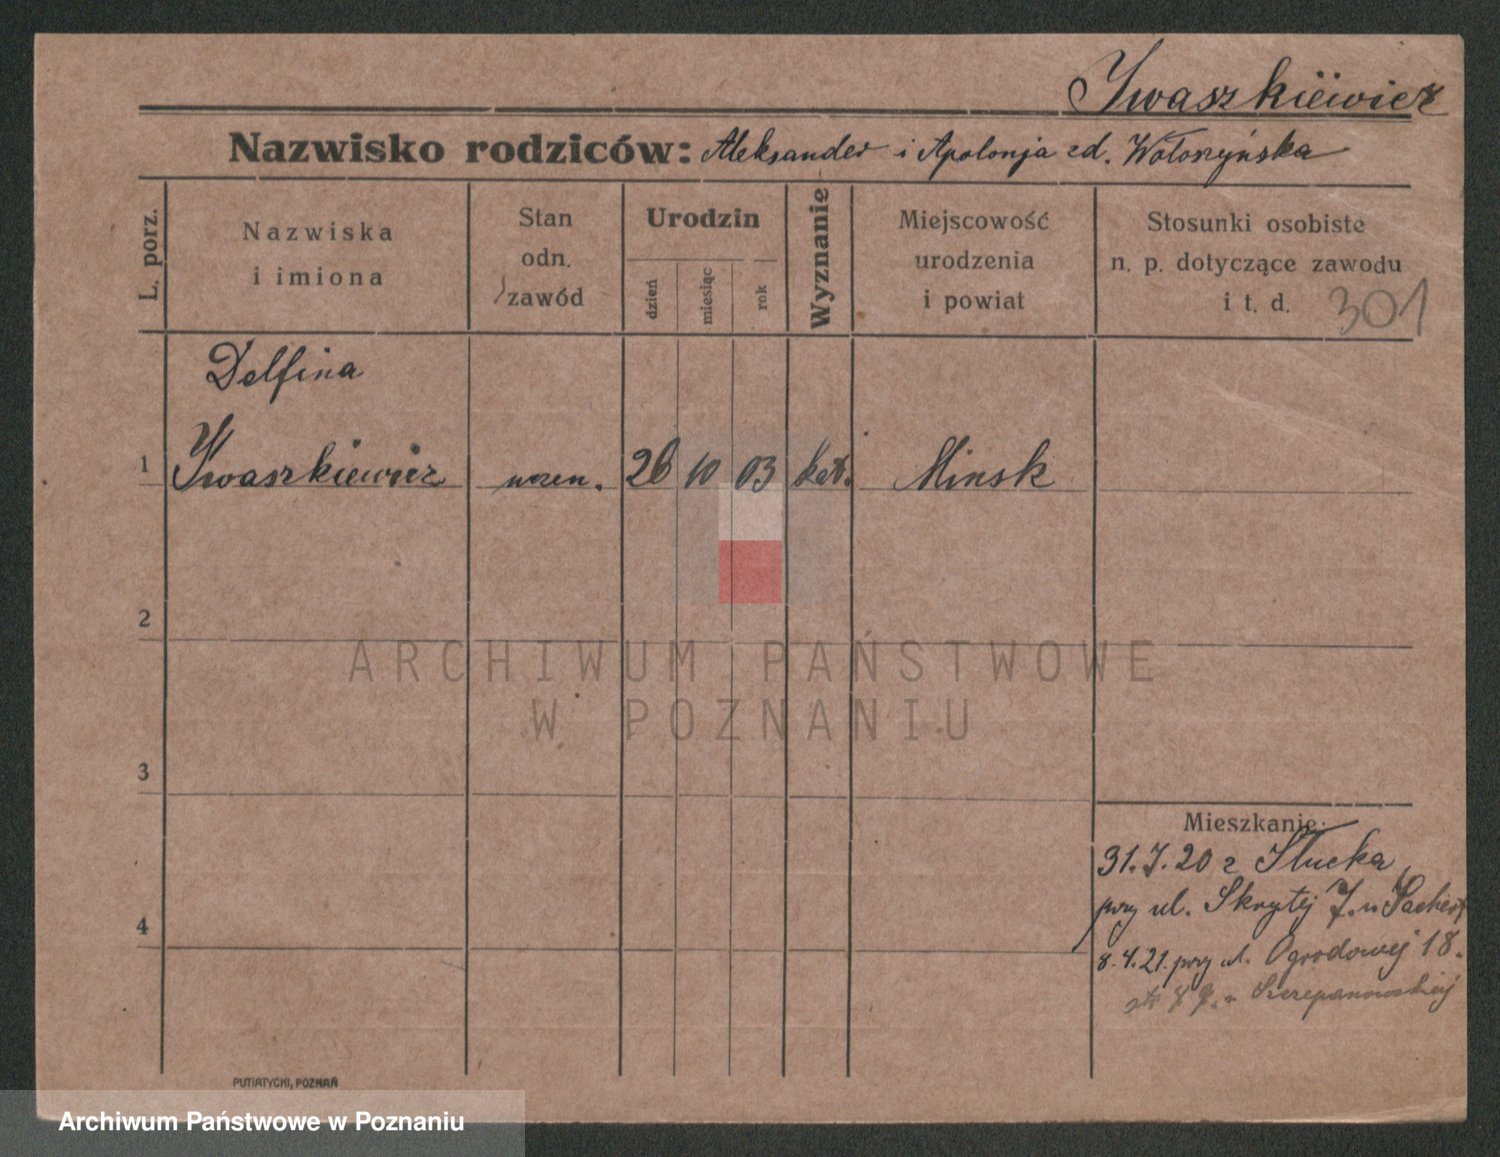 Iwaszkiewicz
Nazwisko rodziców: Aleksander i Apolonja zd. Wołoszyńska
L. porz.
Nazwiska
i imiona
Stan
odn.
zawód
Urodzin
dzień
miesiąc
rok
Wyznanie
Miejscowość
urodzenia
i powiat
Stosunki osobiste
n. p. dotyczące zawodu
i t. d. 301
Delfina
1 Iwaszkiewicz uczen. 26 10 03 kat. Minsk
2
3
4
ARCHIWUM PAŃSTWOWE
W POZNANIU
Mieszkanie:
31.7.20 z Słucka
przy ul. Skrytej 7. u
8.4.21. przy ul. Ogrodowej 18.
Szczepanowskiej
PUTIATYCKI, POZNAŃ
Archiwum Państwowe w Poznaniu